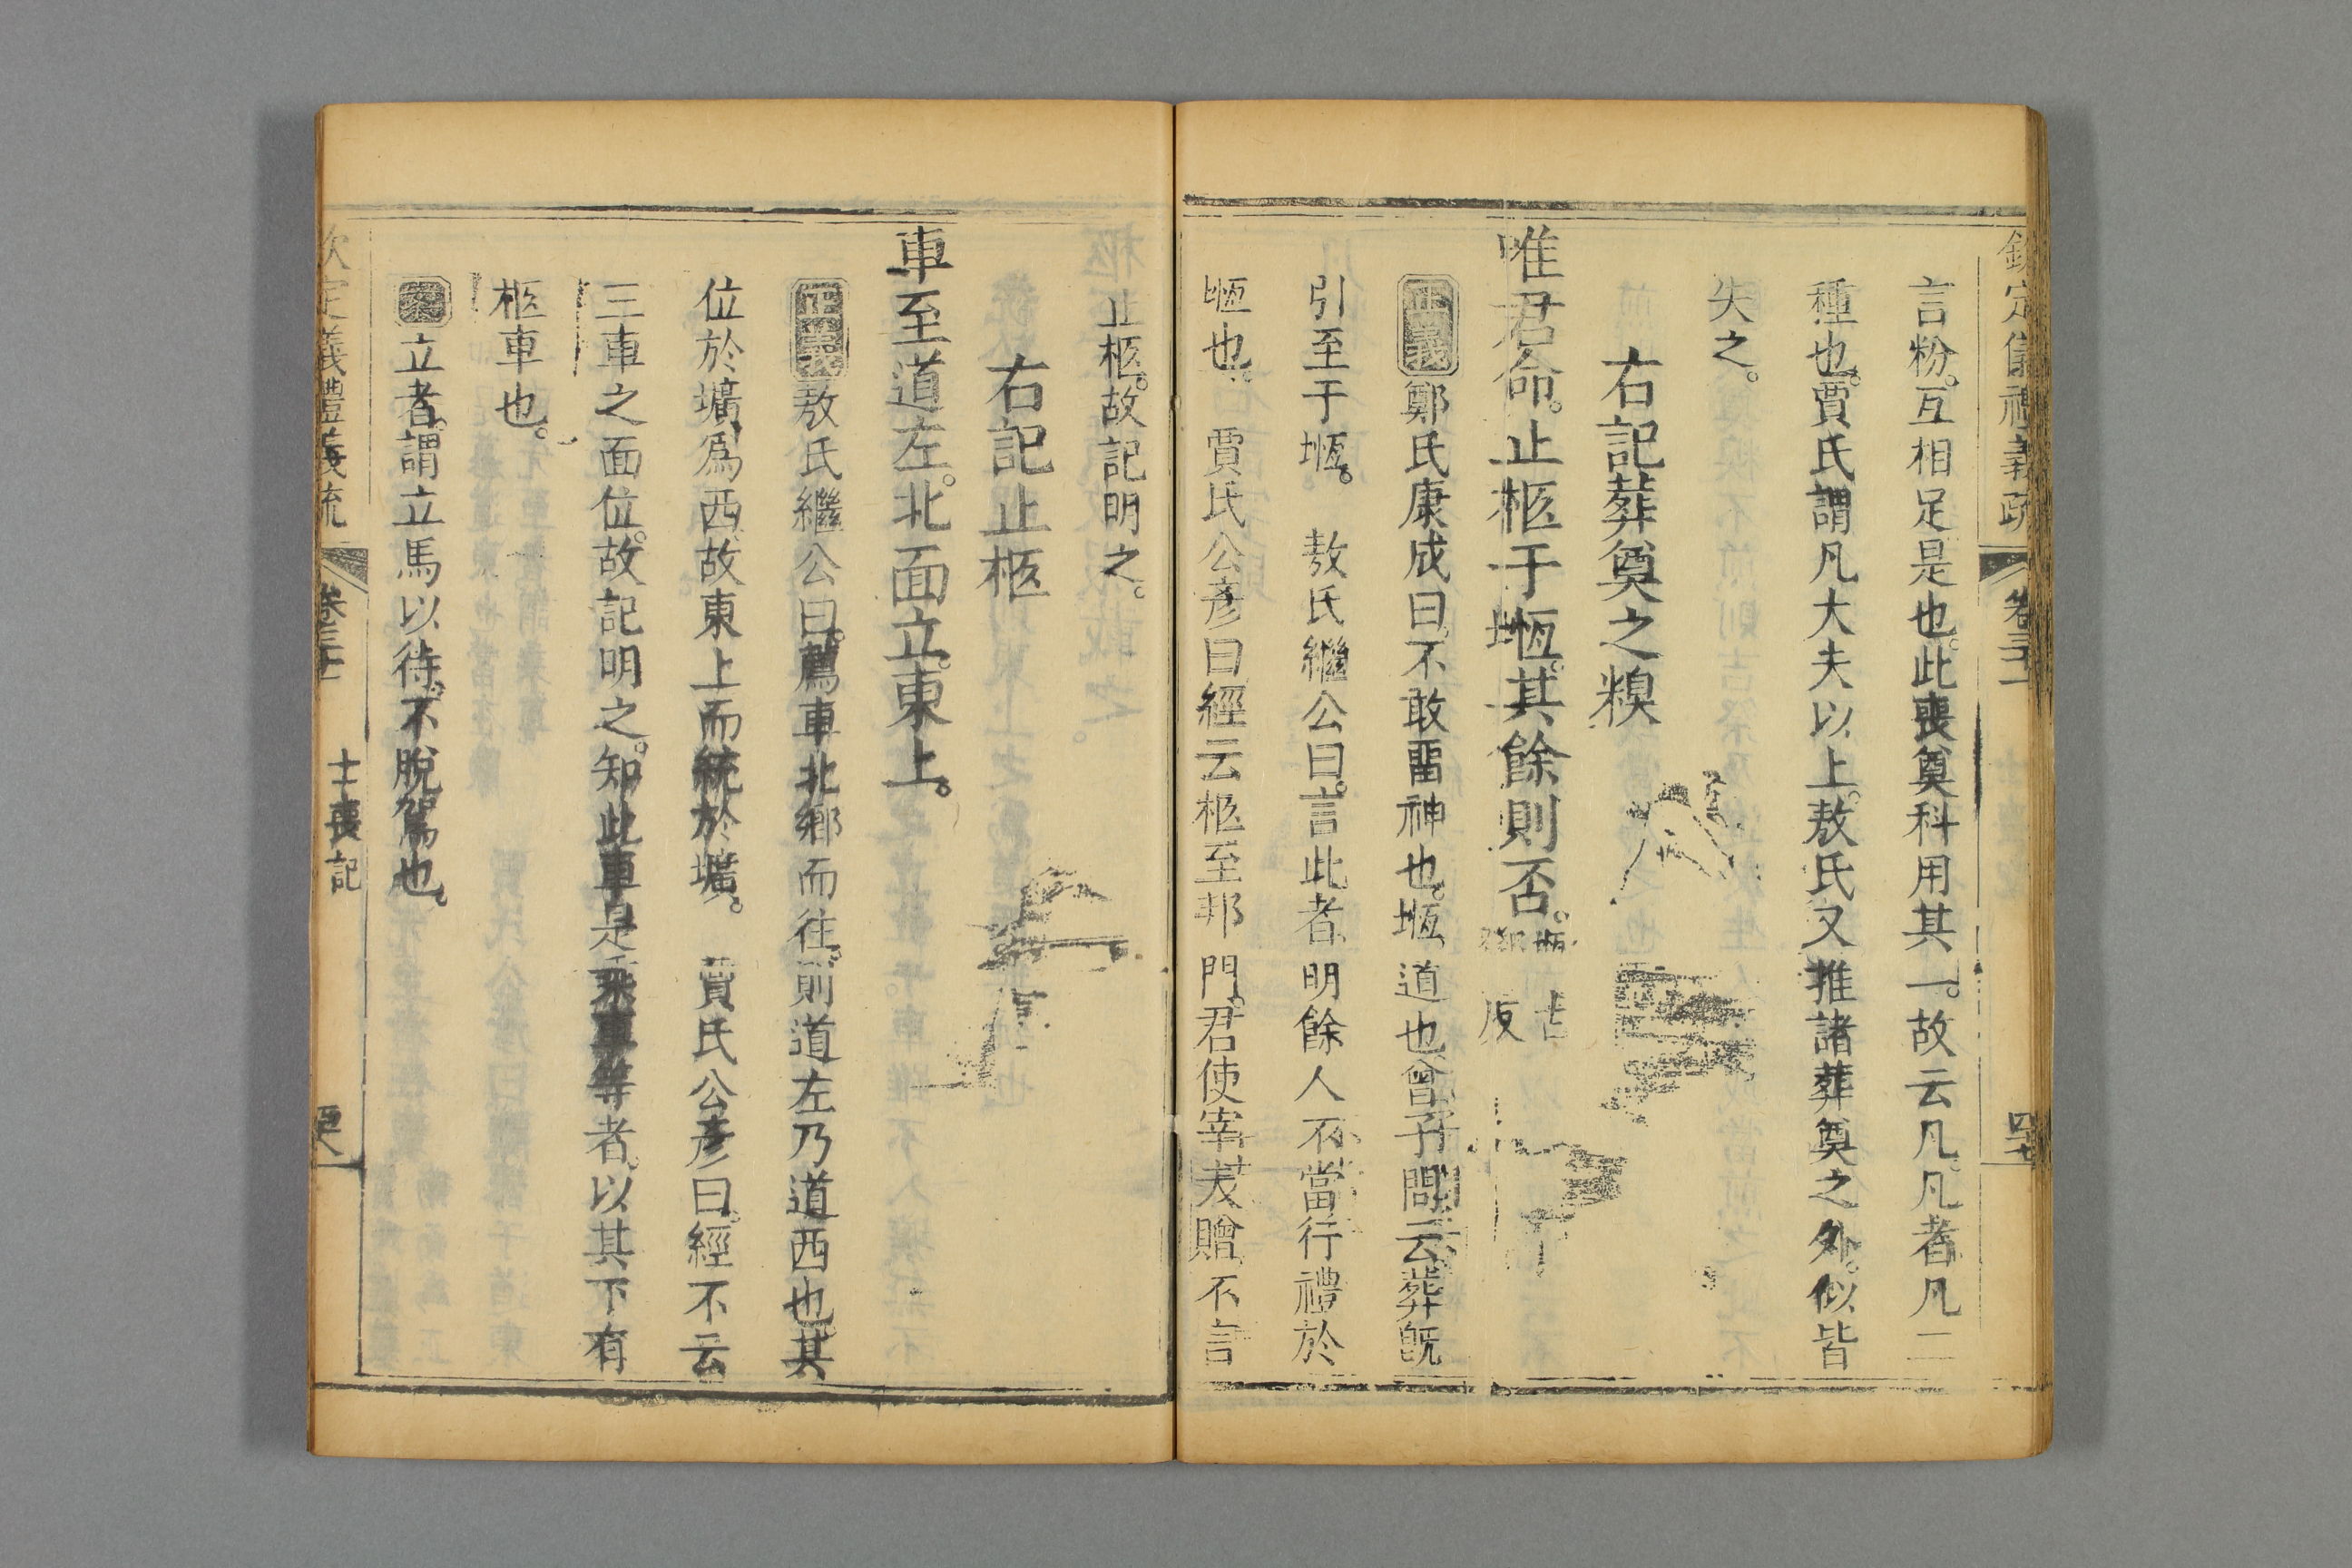 欽定儀禮義疏 卷三十一 四十七
言粉。互相足是也。此喪奠科用其一。故云凡。凡者凡二
種也。賈氏謂凡大夫以上。敖氏又推諸葬奠之外。似皆
失之。
右記葬奠之糗
唯君命。止柩于堩。其餘則否。堩古鄧反
正義鄭氏康成曰。不敢畱神也。堩、道也。曾子問云葬旣
引至于堩。 敖氏繼公曰。言此者、明餘人不當行禮於
堩也。 賈氏公彥曰經云柩至邦門。君使宰夫贈、不言
止柩。故記明之。
右記止柩
車至道左。北面立。東上。
正義敖氏繼公曰。薦車北鄉而往。則道左乃道西也。其
位於壙爲西、故東上而統於壙。 賈氏公彥曰。經不云
三車之面位。故記明之。知此車是乘車等者、以其下有
柩車也。
案立者。謂立馬以待。不脫駕也。
欽定儀禮義疏 卷三十一 士喪記